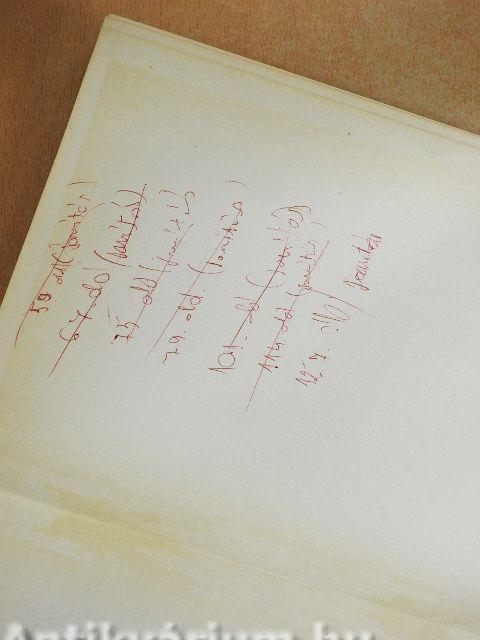 59 old (javítás)
67 old (javítás)
75 old (javítás)
79. old. (javítás)
101. old (javítás)
114 old (javítás)
127. old) javítás
Antikvárium.hu